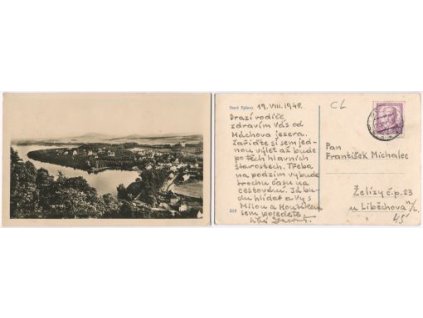 Staré Splavy
19.VIII.1948.
Drazí rodiče,
zdravím Vás od
Máchova jezera.
Zařiďte si sem jed-
nou výlet až bude
po těch hlavních
starostech. Třeba
na podzim vybude
trochu času na
cestování. Já bu-
du hlídat a vy s
Milou a
sem pojedete
Váš
CL
Pan
František Michalec
Želízy č.p. 23
u Liběchova n/L.